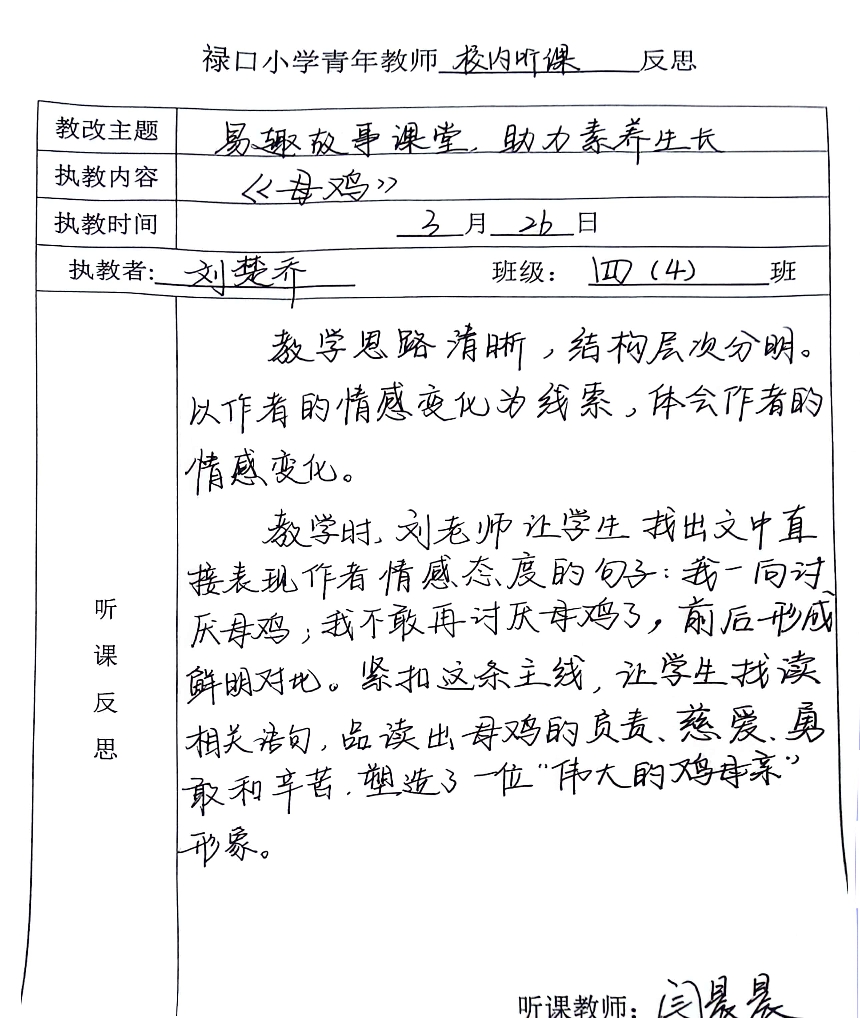 禄口小学青年教师校内听课反思
教改主题 易趣故事课堂，助力素养生长
执教内容 《母鸡》
执教时间 3月26日
执教者：刘楚乔 班级：四（4）班
听课反思
教学思路清晰，结构层次分明。
以作者的情感变化为线索，体会作者的
情感变化。
教学时，刘老师让学生找出文中直
接表现作者情感态度的句子：我一向讨
厌母鸡；我不敢再讨厌母鸡了，前后形成
鲜明对比。紧扣这条主线，让学生找读
相关语句，品读出母鸡的负责、慈爱、勇
敢和辛苦，塑造了一位“伟大的鸡母亲”
形象。
听课教师：闫晨晨